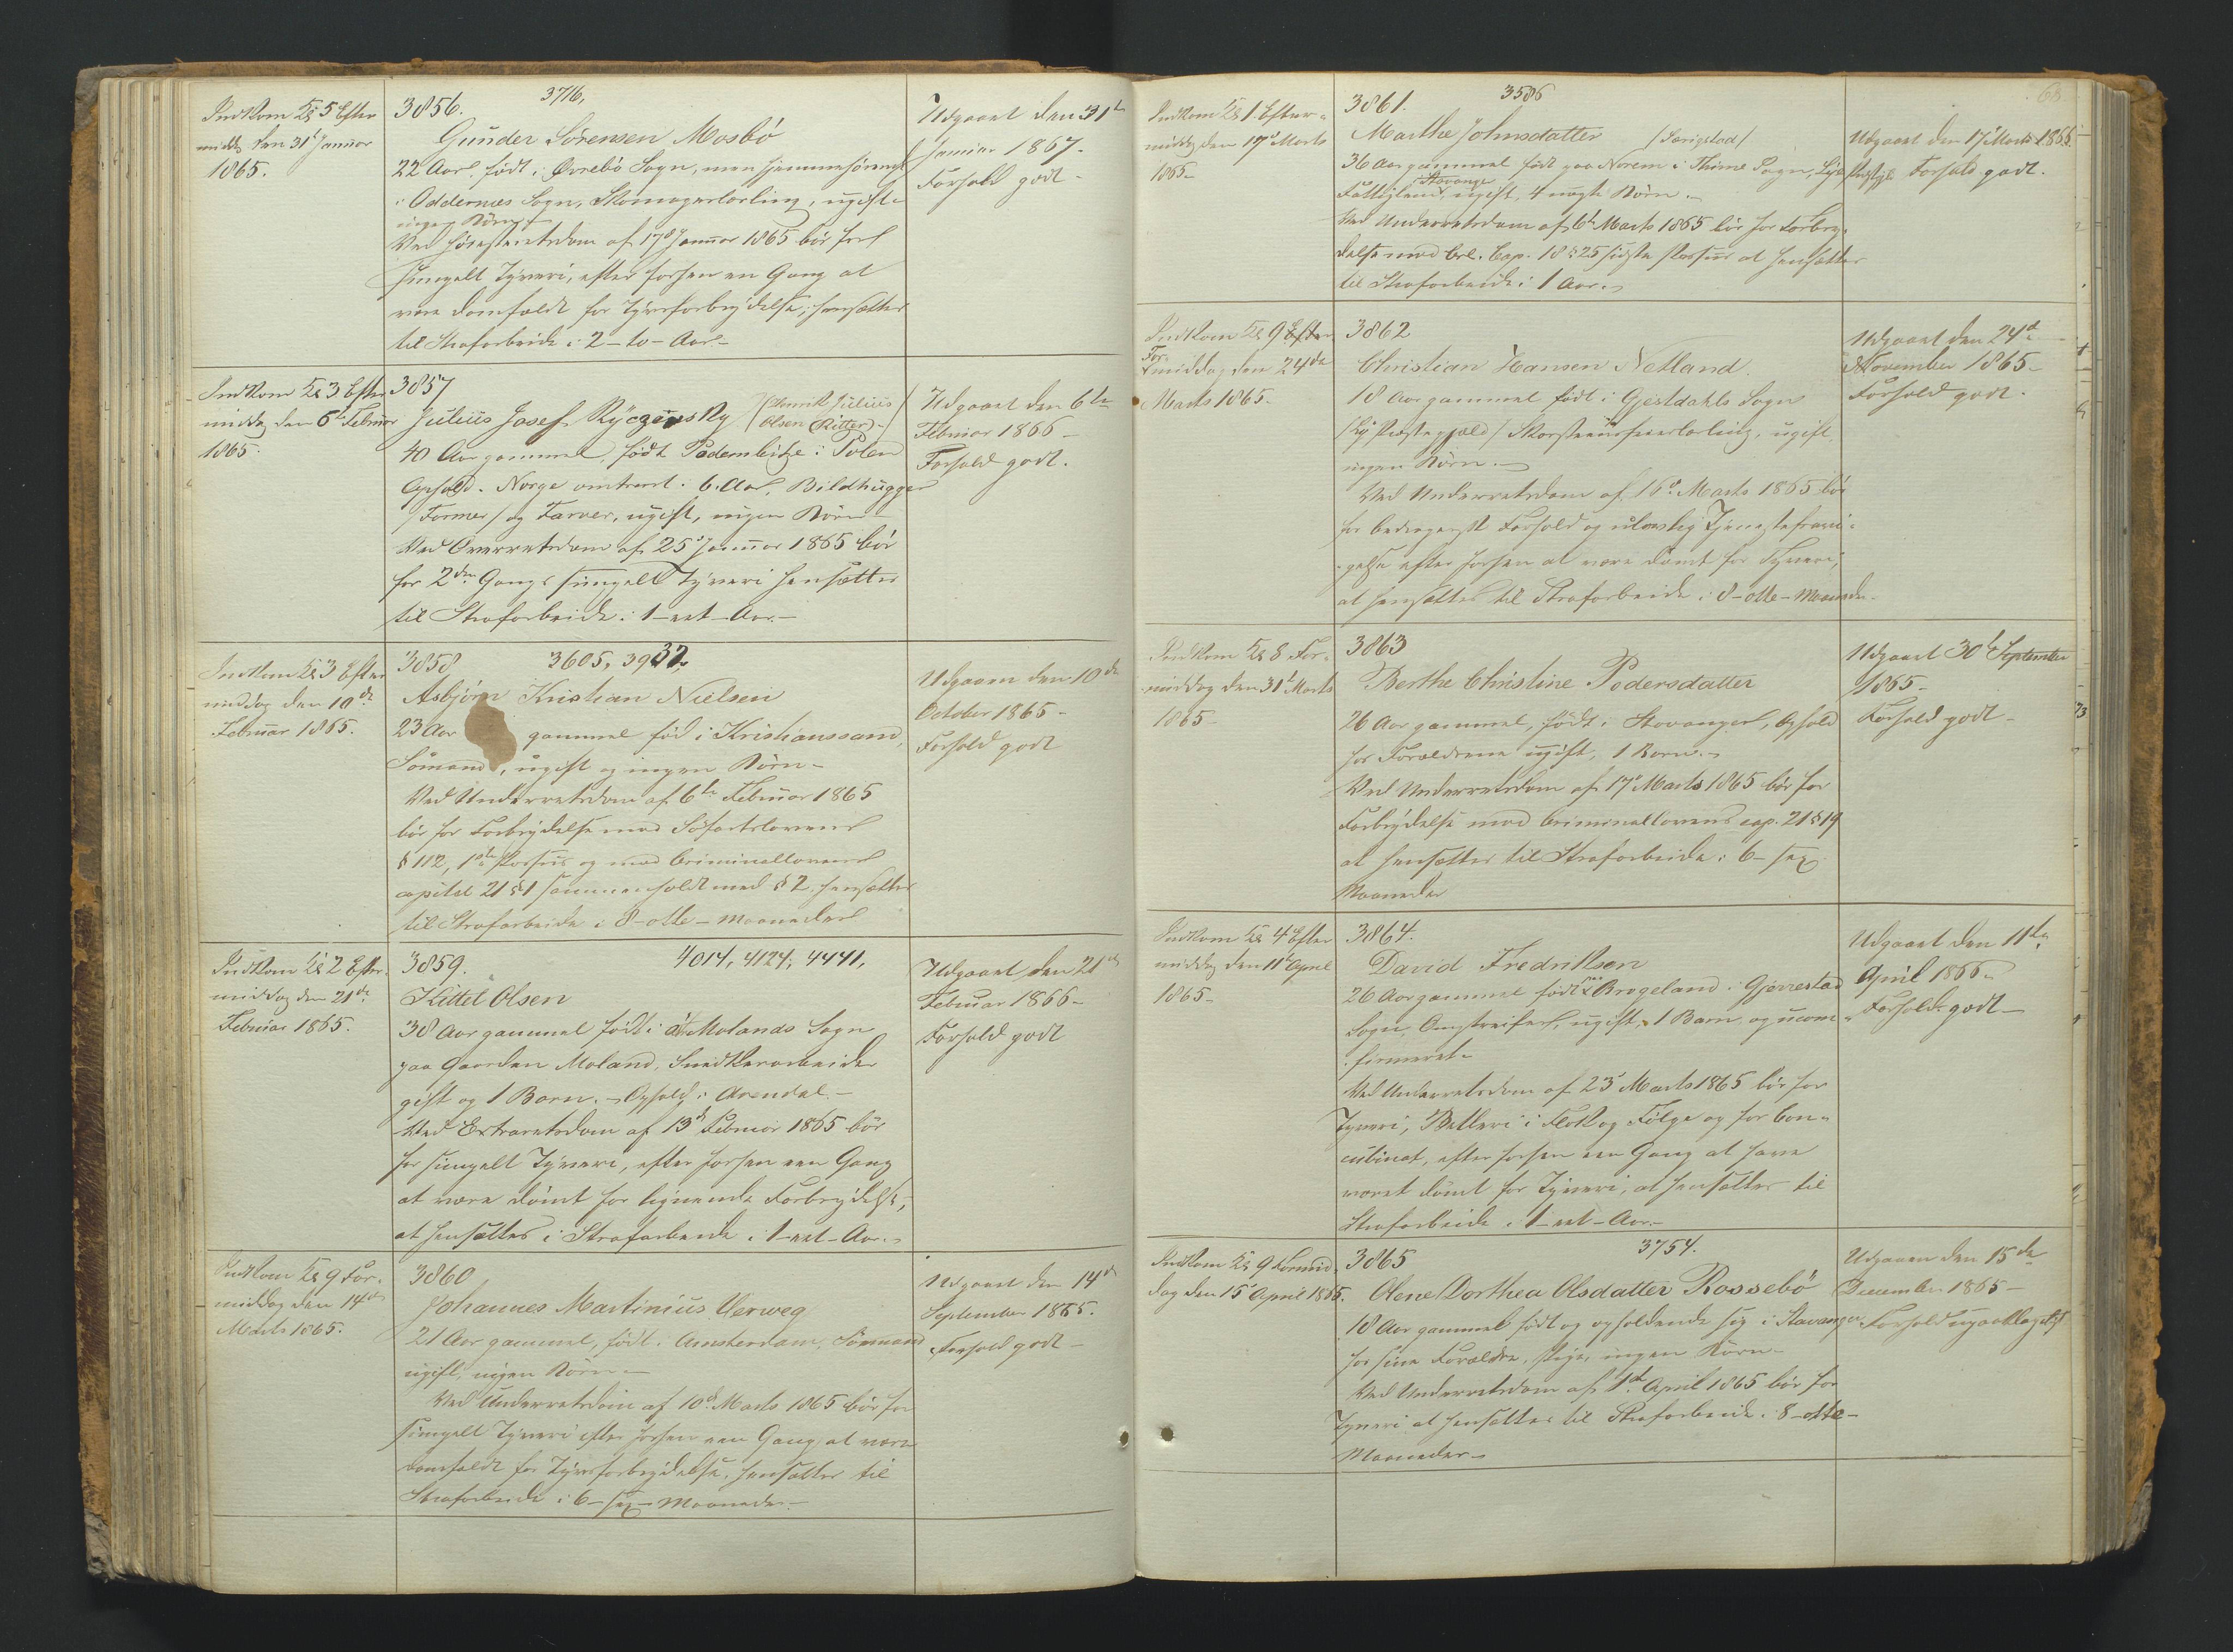 Indkom Kl 5 Efter
middg den 31t Januar
1865.
3856.
3716,
Gunder Sörensen Mosbö
22 Aar, født i Øvrebö Sogn, men hjemmehörende
i Oddernæs Sogn, Skomagerlærling, ugift
ingen Börn
Ved Höiesteretsdom af 17d Januar 1865 bör for
simpelt Tyveri, efter forhen en Gang at
være domfældt for Tyvsforbrydelse, hensættes
til Strafarbeide i 2 - to - Aar -
Udgaaet den 31te
Januar 1867.
Forhold godt -
Indkom Kl 3 Efter
middg den 6te Februar
1865.
3857
Julius Josef Ryczynsky
/Henrik Julius
Olsen (Ritter) -/
40 Aar gammel, født Padembitze i Polen
Ophold. Norge omtrent i 6. Aar, Bildhugger
/Former/ og Farver, ugift, ingen Börn -
Ved Overretsdom af 25d Januar 1865 bör
for 2den Gangs simpelt Tyveri hensættes
til Strafarbeide i 1 - eet - Aar. -
Udgaaet den 6te
Februar 1866 -
Forhold godt.
Indkom Kl 3 Efter
middag den 10de
Februar 1865.
3858
3605, 3937.
Asbjörn Kristian Nielsen
23 Aar gammel född i Kristianssand,
Sömand, ugift og ingen Börn -
Ved Underretsdom af 6te Februar 1865
bör for Forbrydelse mod Söfartslovens
§ 112, 1ste Passus og mod Criminallovens
capitel 21 § 1 sammenholdt med § 2, hensættes
til Strafarbeide i 8 - otte - Maaneder
Udgaaen den 10de
October 1865 -
Forhold godt
Indkom Kl 2 Efter-
middag den 21de
Februar 1865.
3859.
4014, 4124, 4441,
Kittel Olsen
38 Aar gammel født i Molands Sogn
paa Gaarden Moland, Snedkerarbeider
gift og 1 Barn. - Ophold i Arendal. -
Ved Extraretsdom af 13d Februar 1865 bör
for simpelt Tyveri, efter forhen een Gang
at være dömt for lignende Forbrydelse,
at hensættes i Strafarbeide i 1 - eet - Aar. -
Udgaaet den 21de
Februar 1866 -
Forhold godt
Indkom Kl 9 For-
middag den 14de
Marts 1865.
3860
Johannes Martinius Verweg
21 Aar gammel, født i Amsterdam, Sömand
ugift, ingen Börn -
Ved Underretsdom af 10d Marts 1865 bör for
simpelt Tyveri efter forhen een Gang at være
domfældt for Tyvsforbrydelse, hensættes til
Strafarbeide i 6 - sex - Maaneder -
Udgaaet den 14de
September 1865.
Forhold godt -
68
Indkom Kl 1. Efter-
middg den 17d Marts
1865 -
3861.
3586
Marthe Johnsdatter
/Særigstad/
36 Aar gammel født paa Norem i Thime Sogn, Lye Præstegjld
Stavanger
Fattiglem, ugift, 4 uægte Börn. -
Ved Underretsdom af 6te Marts 1865 bör for Forbry-
delse mod Crl. Cap. 18 § 25 sidste Passus at hensættes
til Strafarbeide i 1 Aar. -
Udgaaet den 17 Marts 1866.
Forhold godt.
Indkom Kl 9 Efter
For-
middag den 24de
Marts 1865.
3862
Christian Hansen Netland.
18 Aar gammel født i Gjesdahls Sogn
/Lye Præstegjæld/ Skorsteensfeierlærling, ugift
ingen Börn. -
Ved Underretsdom af 16d Marts 1865 bör
for bedragersk Forhold og ulovlig Tjenestefravi-
gelse efter forhen at være dömt for Tyveri,
at hensættes til Strafarbeide i 8 - otte - Maaneder
Udgaaet den 24de
November 1865 -
Forhold godt.
Indkom Kl 8 For-
middag den 31t Marts
1865 -
3863
Berthe Christine Pedersdatter
26 Aar gammel, født i Stavanger, Ophold
hos Forældrene ugift, 1 Barn. -
Ved Underretsdom af 17d Marts 1865 bör for
Forbrydelse mod Criminallovens cap. 21 § 19
at hensættes til Strafarbeide i 6 - sex
Maaneder
Udgaaet 30te September
1865 -
Forhold godt -
Indkom Kl 4 Efter
middag den 11te April
1865 -
3864.
David Fredriksen
26 Aar gammel født paa Brogeland i Gjerrestad
Sogn, Omstreifer, ugift, 1 Barn og ucon-
firmeret -
Ved Underretsdom af 23d Marts 1865 bör for
Tyveri, Betleri i Flok og Fölge og for Con-
cubinat, efter forhen een Gang at have
været dömt for Tyveri, at hensættes til
Strafarbeide i 1 - eet - Aar. -
Udgaaet den 11te
April 1866 -
Forhold godt -
Indkom Kl 9 Formid-
dag den 15d April 1865.
3865
3754.
Olene Dorthea Olsdatter Rossebö
18 Aar gammel født og opholdende sig i Stavanger
hos sine Forældre, Pige, ingen Börn -
Ved Underretsdom af 1ste April 1865 bör for
Tyveri at hensættes til Strafarbeide i 8 - otte -
Maaneder -
Udgaaen den 15de
December 1865 -
Forhold upaaklageligt